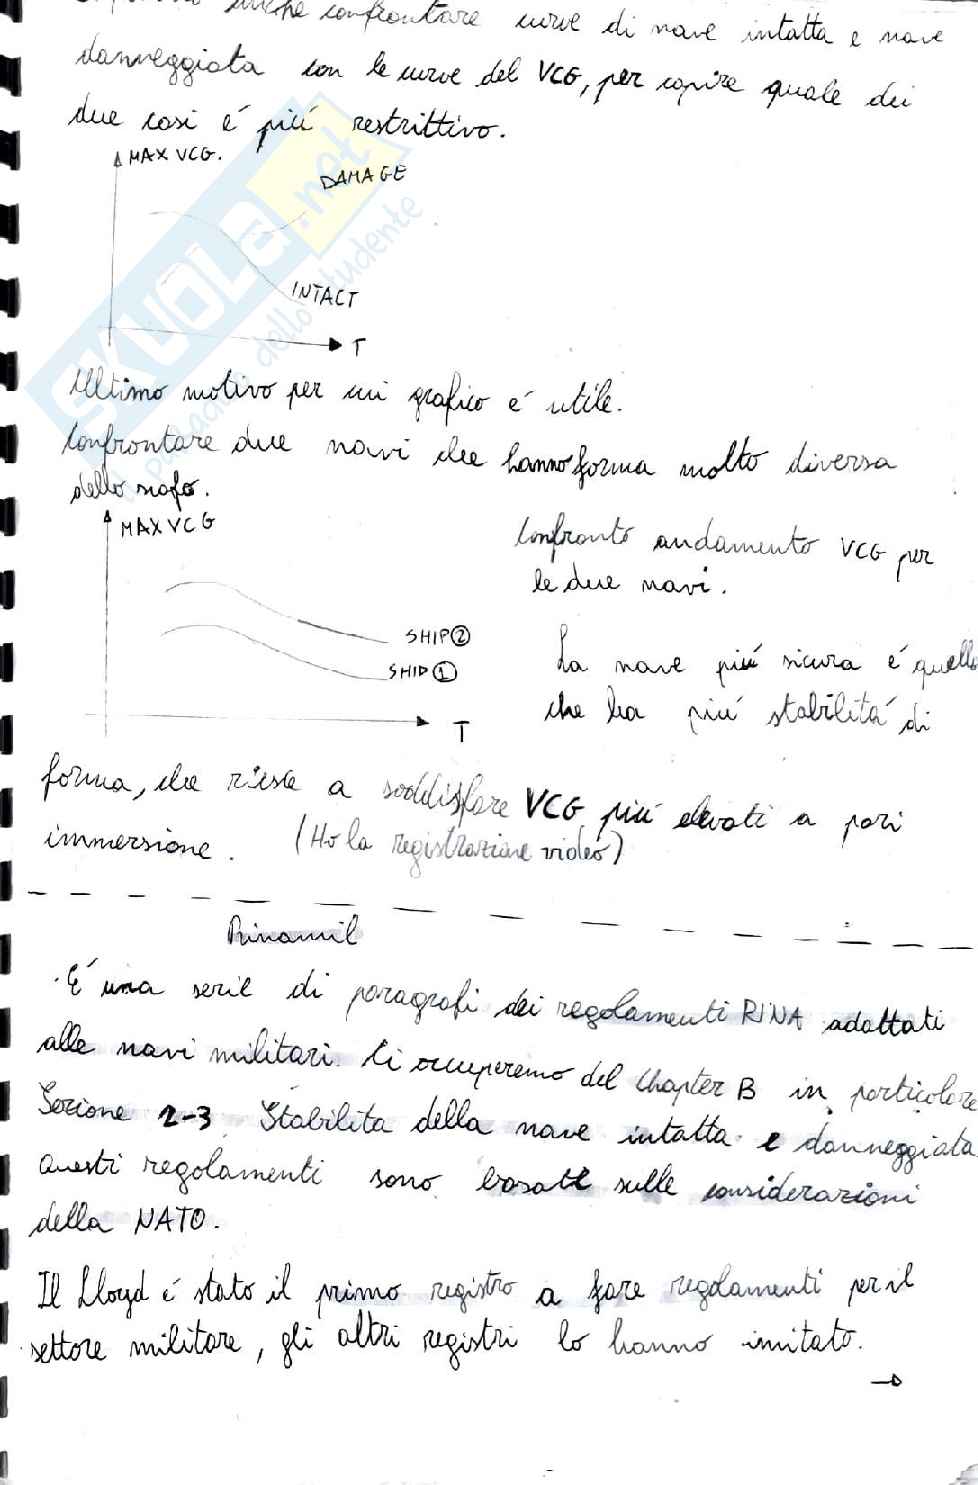 anche confrontare curve di nave intatta e nave
danneggiata con le curve del VCG, per capire quale dei
due casi é piú restrittivo.
MAX VCG.
DAMAGE
INTACT
T
Ultimo motivo per cui grafico é utile.
Confrontare due navi che hanno forma molto diversa
dello scafo.
MAX VCG
Confronto andamento VCG per
le due navi.
SHIP 2
SHIP 1
T
La nave piú sicura é quella
che ha piú stabilitá di
forma, che riesce a soddisfare VCG piú elevati a pari
immersione. (Ho la registrazione video)
Rinamil
É una serie di paragrafi dei regolamenti RINA adattati
alle navi militari. Ci occuperemo del Chapter B in particolare
Sezione 2-3 Stabilita della nave intatta e danneggiata
Questi regolamenti sono basati sulle considerazioni
della NATO.
Il Lloyd é stato il primo registro a fare regolamenti per il
settore militare, gli altri registri lo hanno imitato.
SKUOLA.net
il paradiso dello studente